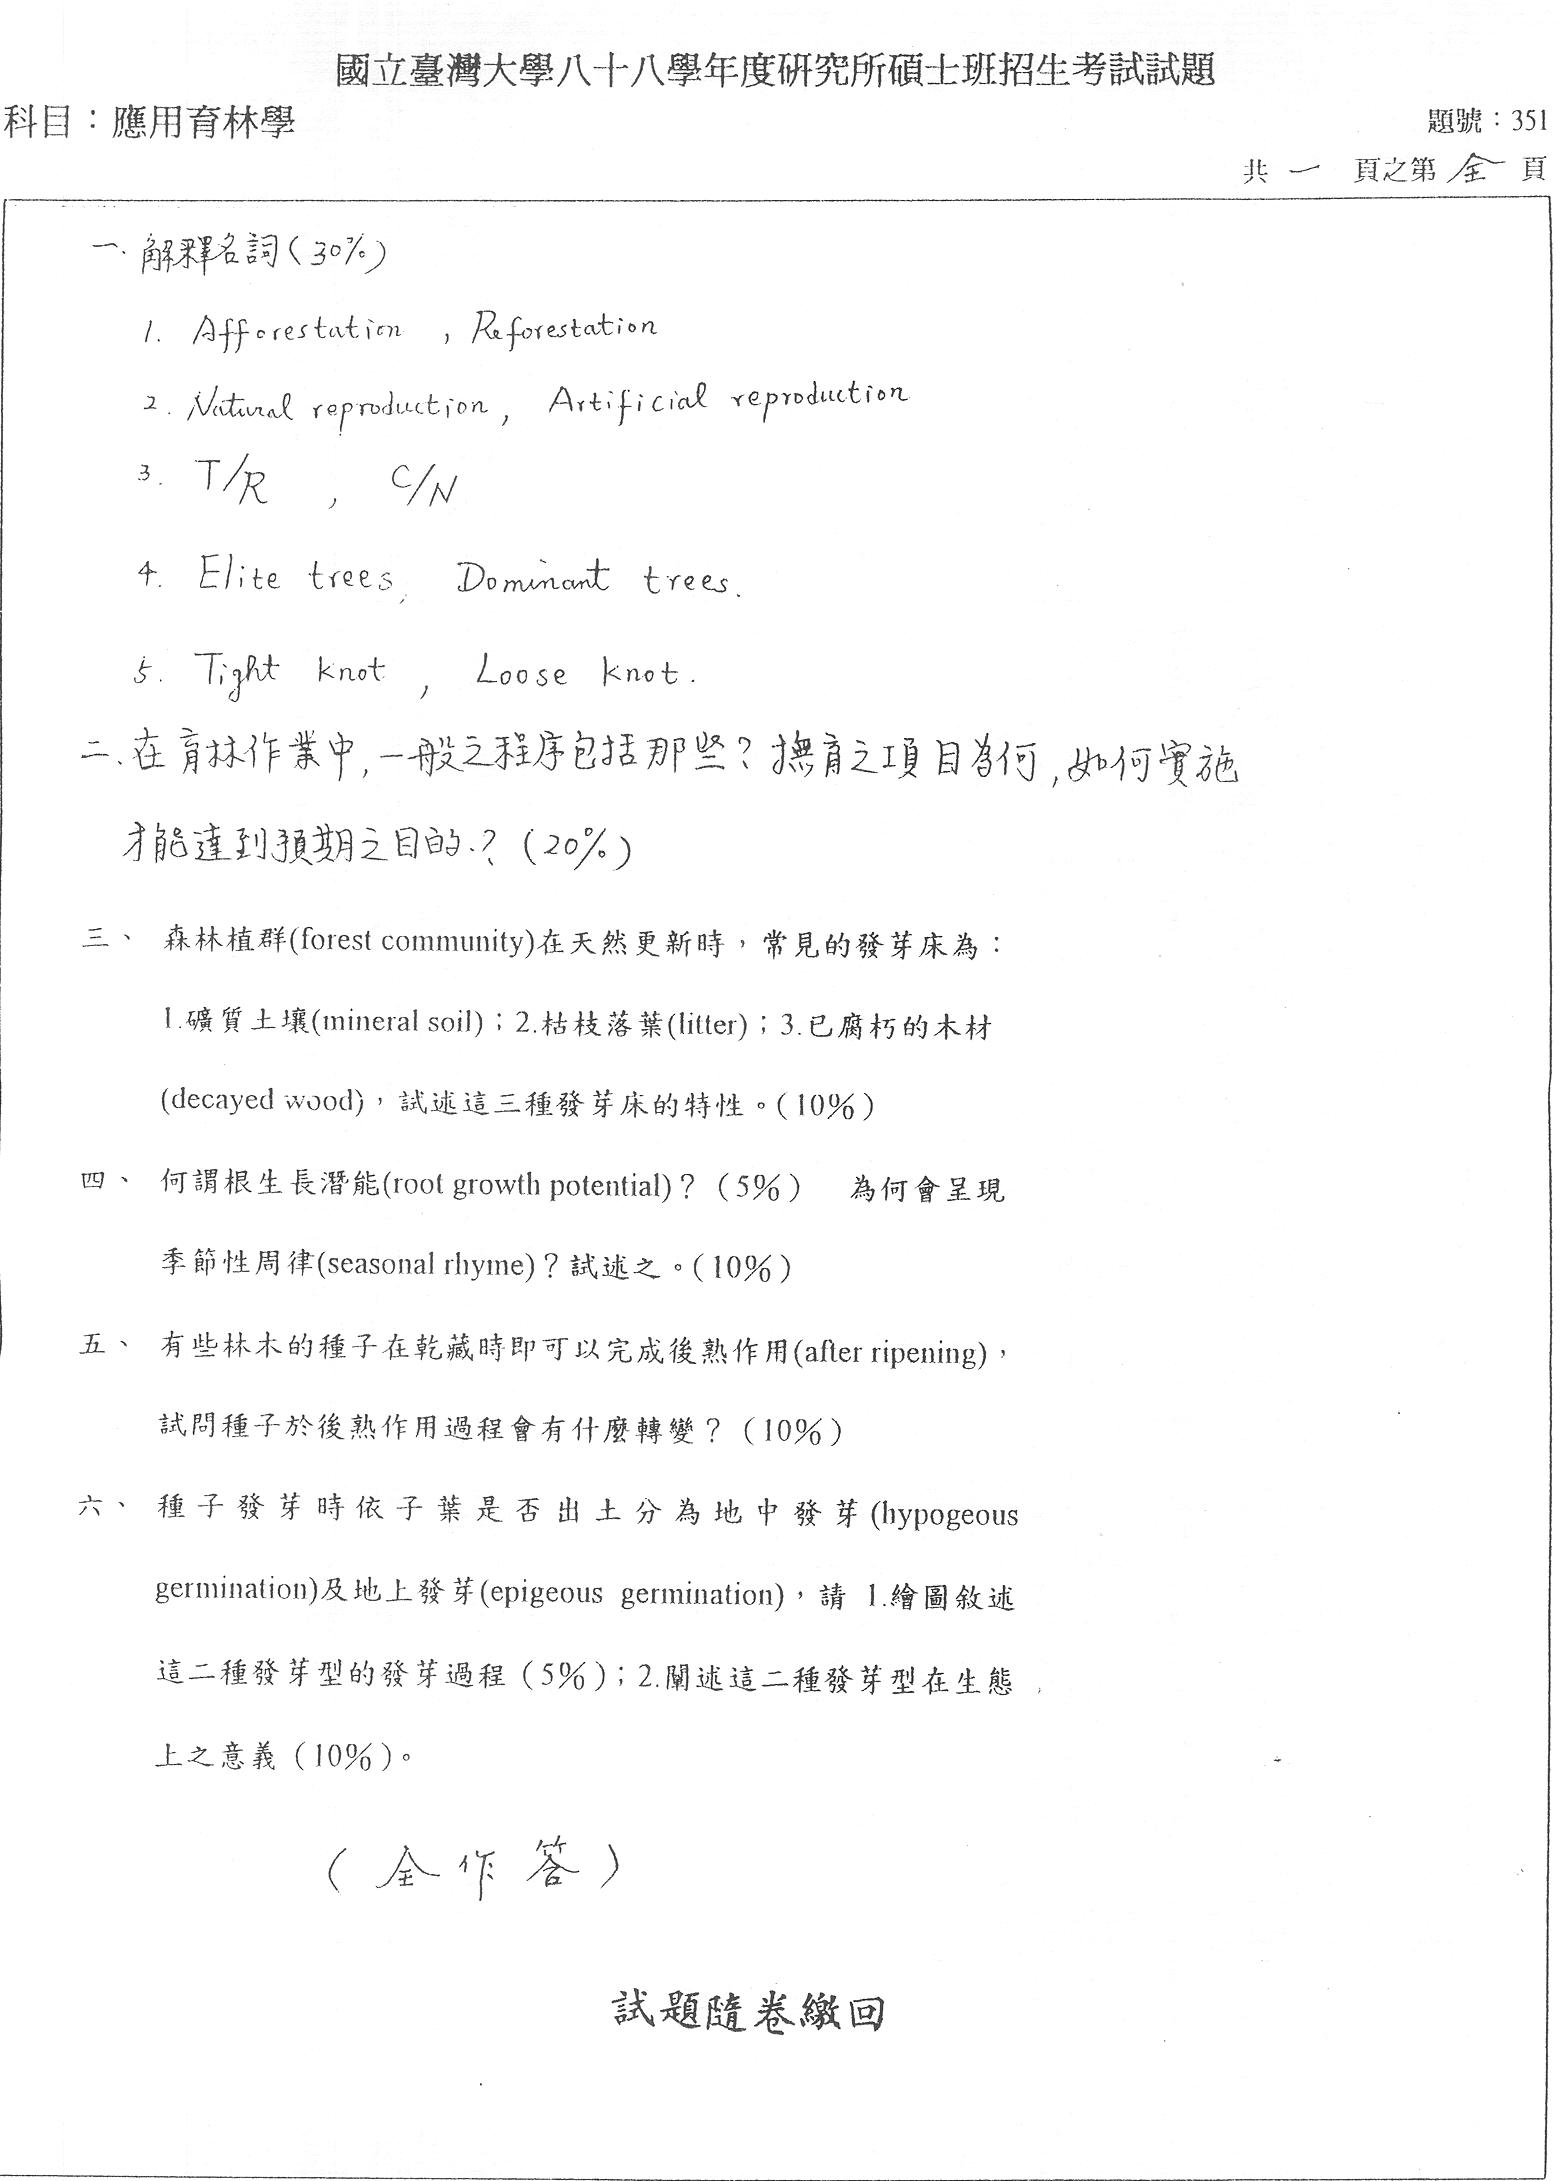 國立臺灣大學八十八學年度研究所碩士班招生考試試題
科目：應用育林學
題號：351
共 一 頁之第 全 頁
一. 解釋名詞(30%)
1. Afforestation , Reforestation
2. Natural reproduction, Artificial reproduction
3. T/R , C/N
4. Elite trees, Dominant trees.
5. Tight knot , Loose knot.
二、在育林作業中,一般之程序包括那些？撫育之項目為何,如何實施
才能達到預期之目的.？(20%)
三、 森林植群(forest community)在天然更新時，常見的發芽床為：
1.礦質土壤(mineral soil)；2.枯枝落葉(litter)；3.已腐朽的木材
(decayed wood)，試述這三種發芽床的特性。(10%)
四、 何謂根生長潛能(root growth potential)？(5%) 為何會呈現
季節性周律(seasonal rhyme)？試述之。(10%)
五、 有些林木的種子在乾藏時即可以完成後熟作用(after ripening)，
試問種子於後熟作用過程會有什麼轉變？(10%)
六、 種子發芽時依子葉是否出土分為地中發芽(hypogeous
germination)及地上發芽(epigeous germination)，請 1.繪圖敘述
這二種發芽型的發芽過程(5%)；2.闡述這二種發芽型在生態
上之意義(10%)。
(全作答)
試題隨卷繳回